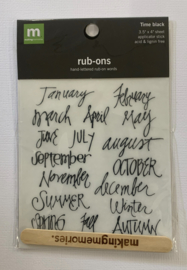 m
Time black
3.5" x 6" sheet
applicator stick
acid & lignin free
rub-ons
hand lettered rub on words
January February
march April May
JUNE JULY
august
September
OCTOBER
November
december
SUMMER Winter
SPRING Fall AUTUMN
makingmemories.